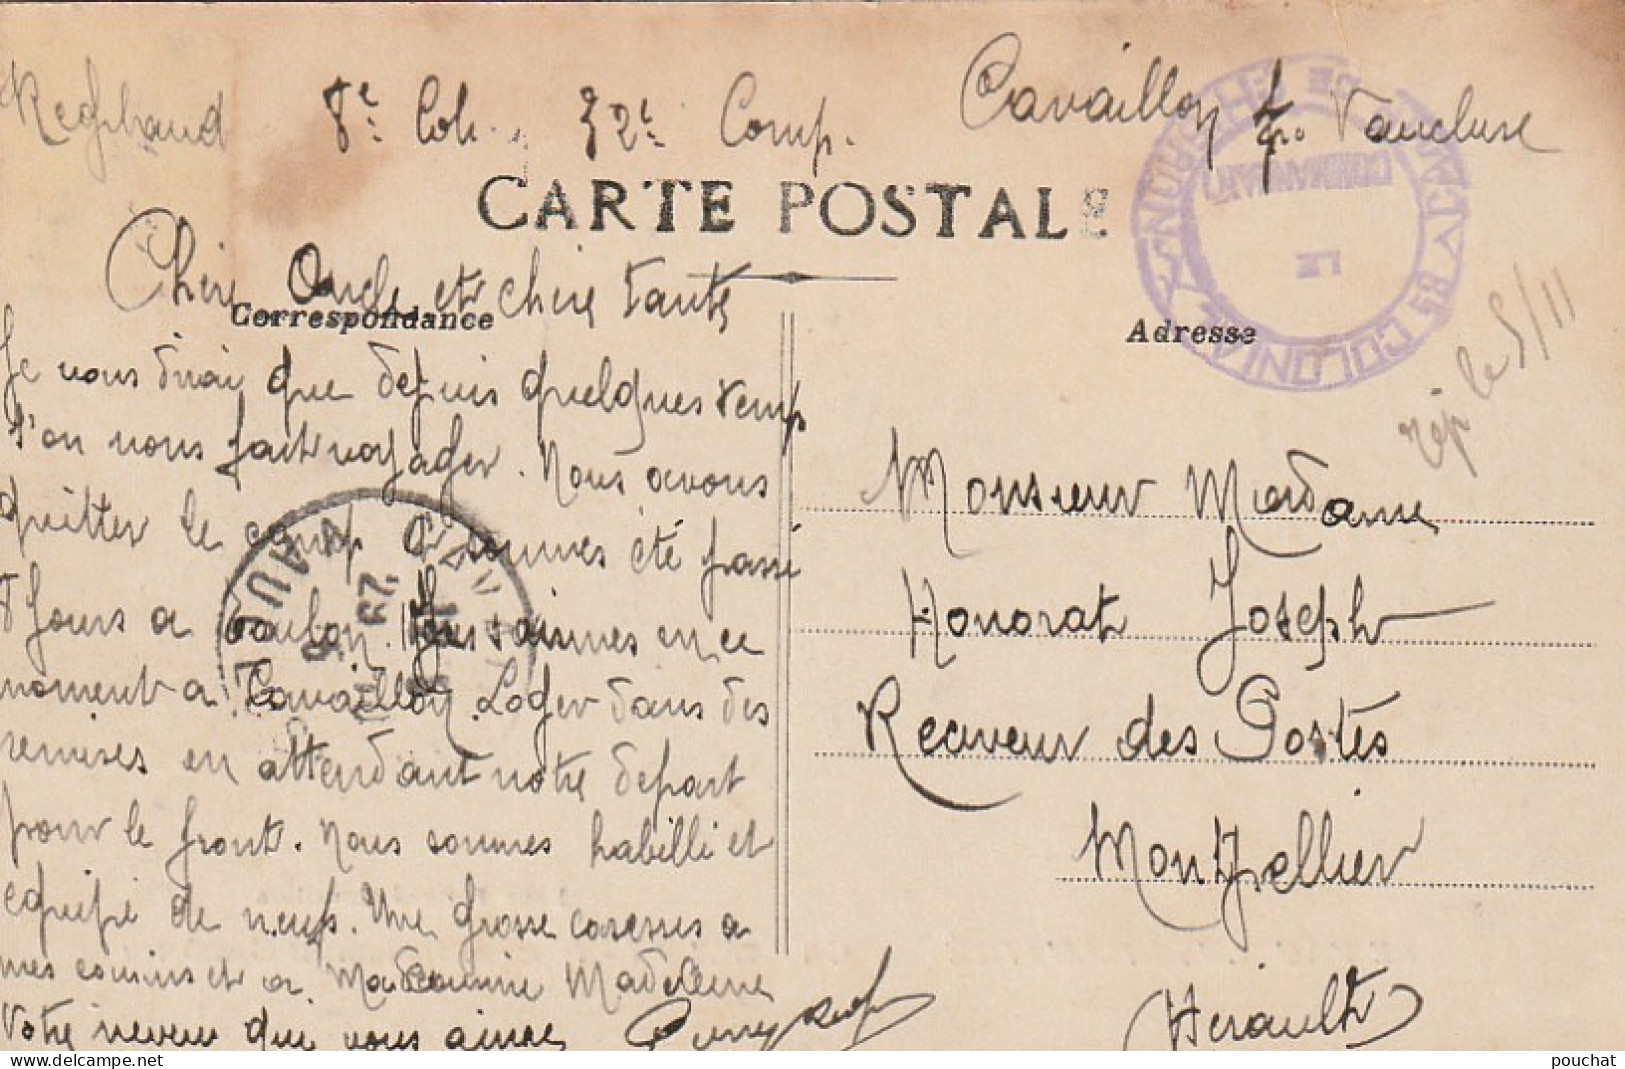 8e Col. 32e Comp. Cavaillon Vaucluse
CARTE POSTALE
Chere Oncle et chere tante
Correspondance
Adresse
Je vous dirai que depuis quelques temps
l'on nous fait voyager. Nous avons
quitter le camp sommes été passé
8 Jours a Toulon. Nous sommes en ce
moment a Cavaillon Loger dans des
remises en attendant notre depart
pour le front. Nous sommes habillé et
equipé de neuf. Une grosse caresses a
mes cousins et a Ma cousine Madeleine
Votre neveu qui vous aime
rép le 5/11
Monsieur Madame
Honorat Joseph
Receveur des Postes
Montpellier
Herault
VAUCLUSE
COLONIAL
COMMANDANT
LE
pouchat